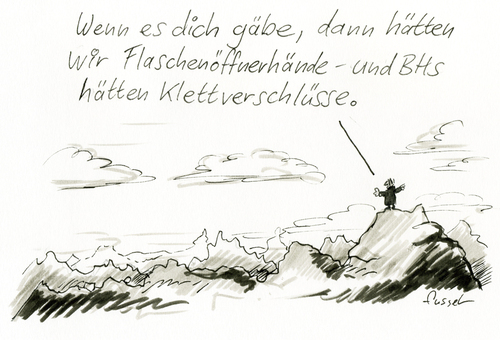 Wenn es dich gäbe, dann hätten
wir Flaschenöffnerhände – und BHs
hätten Klettverschlüsse.